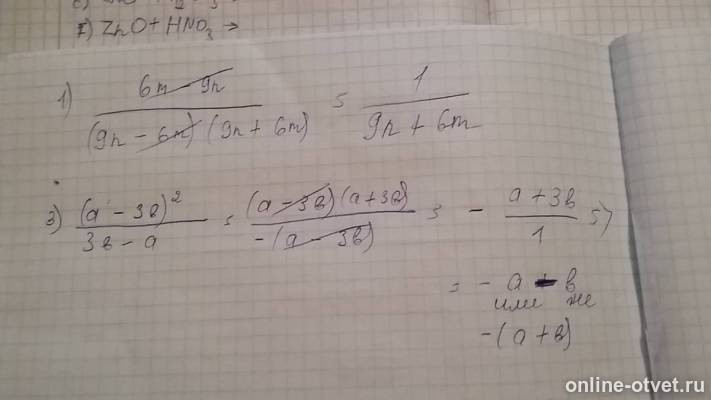 7) ZnO + HNO₃ →
1) (6m - 9n) / ((9n - 6m)(9n + 6m)) = 1 / (9n + 6m)
3) (a - 3b)² / (3b - a) = (a - 3b)(a + 3b) / (-(a - 3b)) = - (a + 3b) / 1 =>
= - a - b
или же
-(a + b)
online-otvet.ru